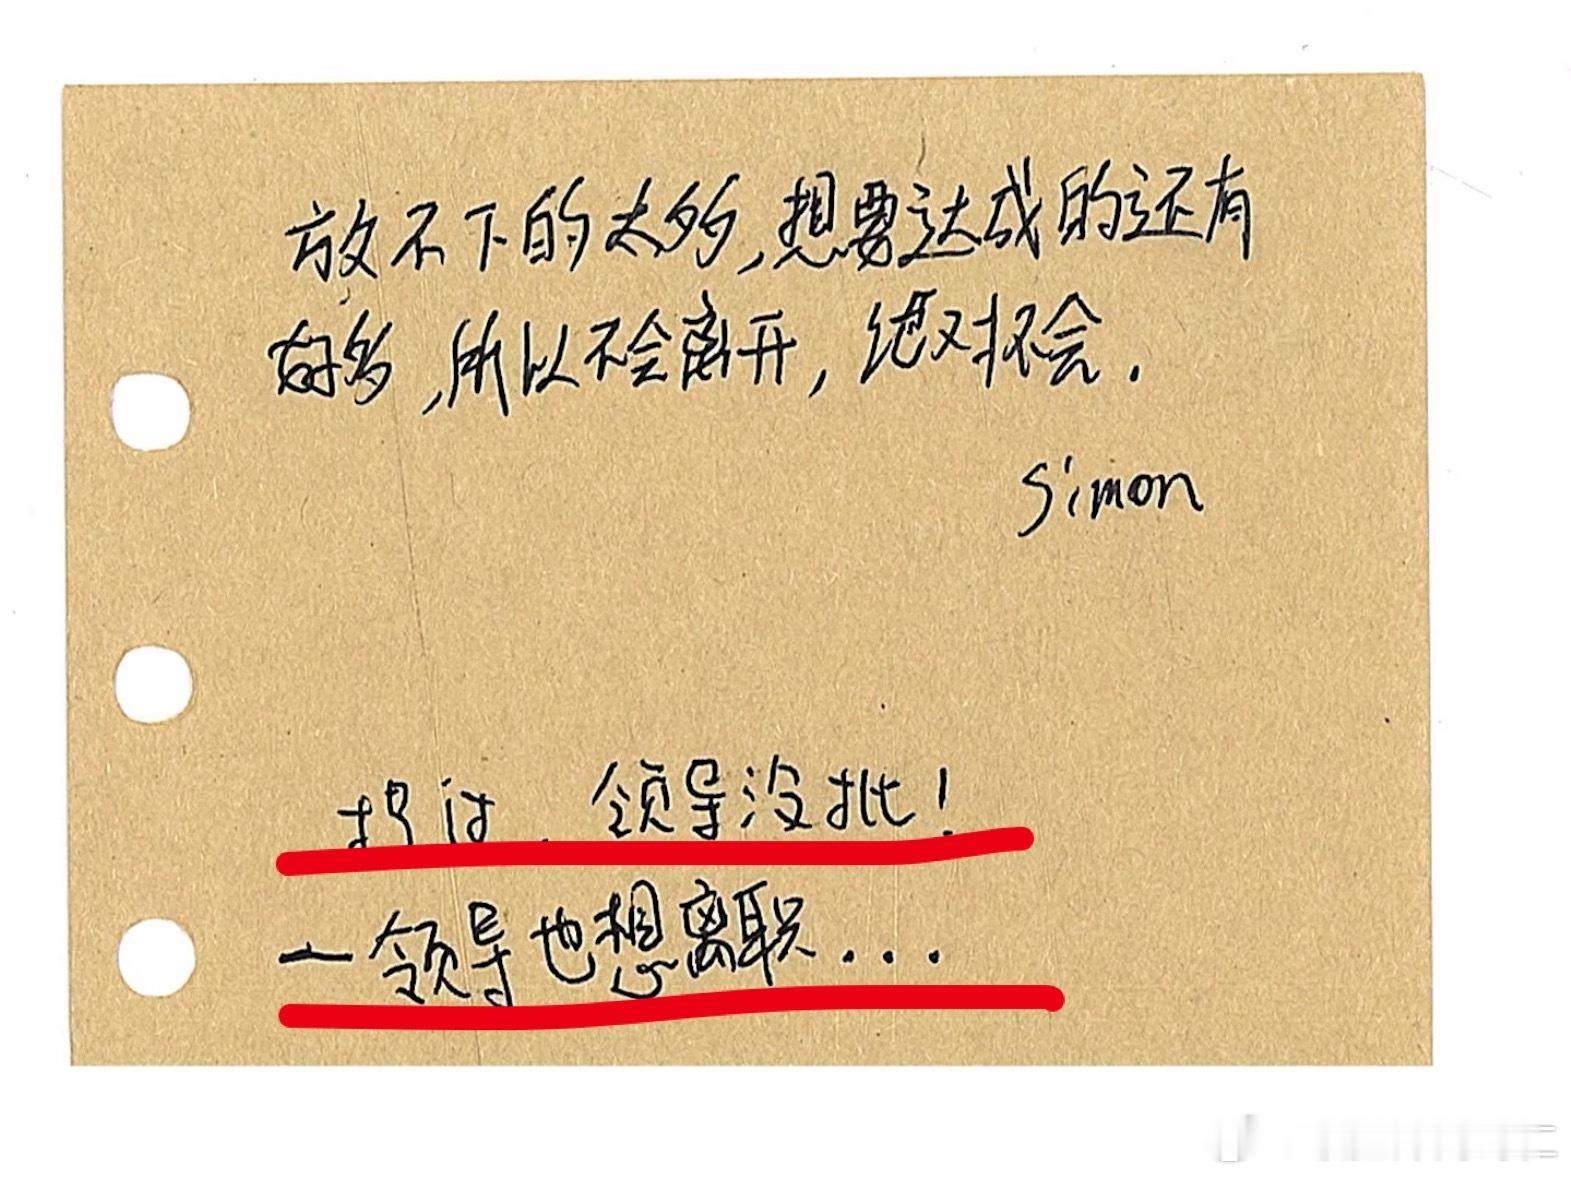 放不下的太多,想要达成的还有
好多,所以不会离开,绝对不会.
simon
领导没批!
一领导也想离职...